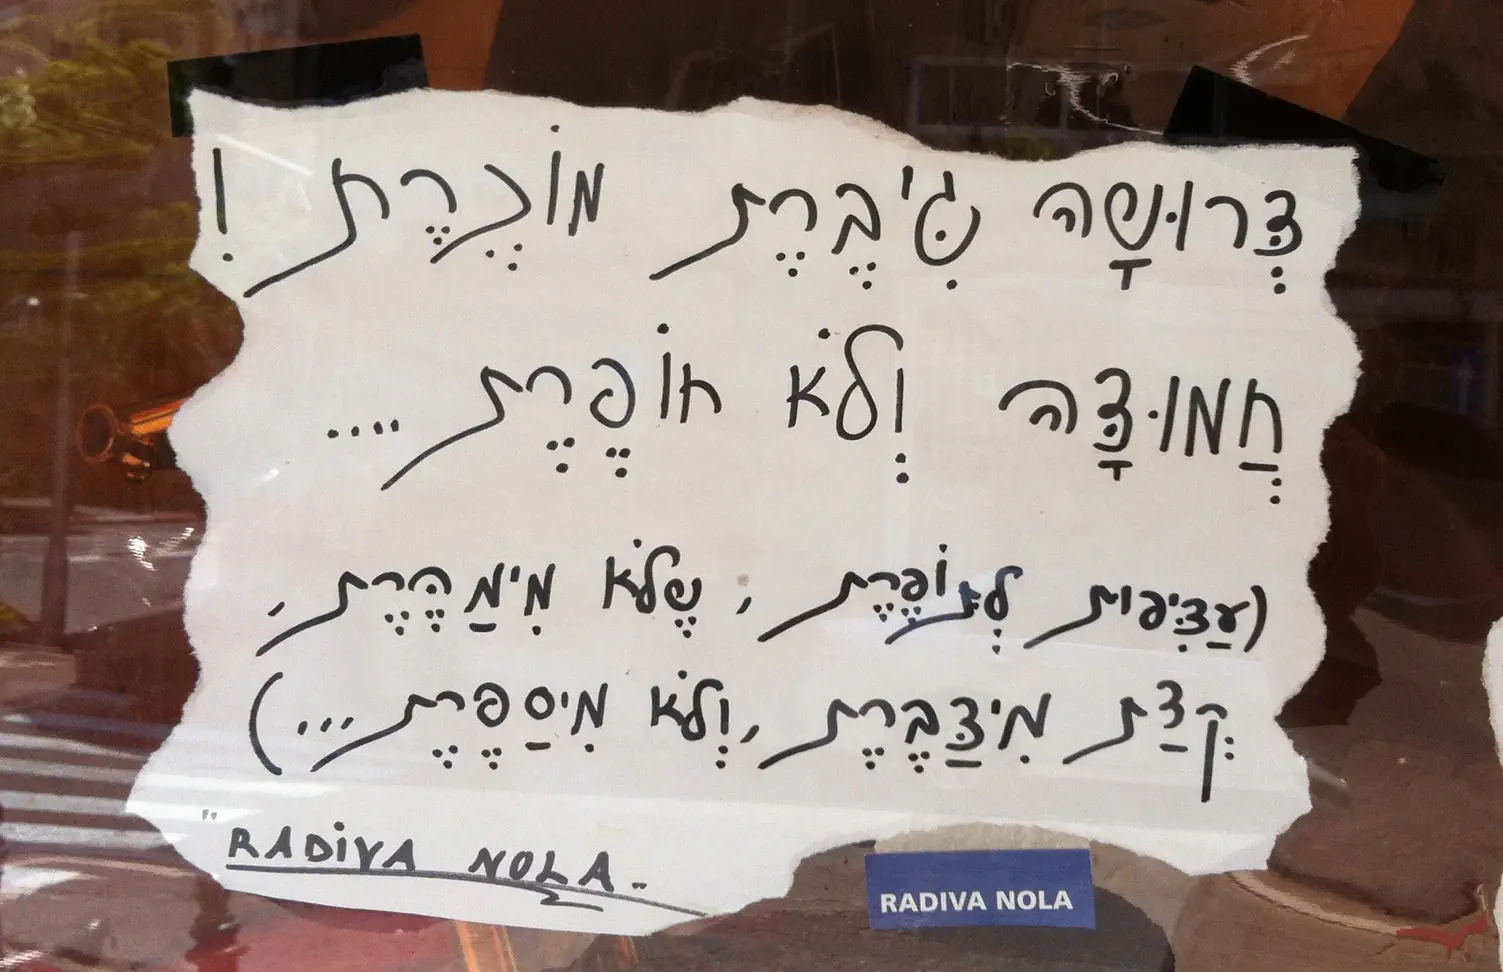 דְּרוּשָׁה גִּיבֶרֶת מוֹכֶרֶת !
חֲמוּדָּה וְלֹא חוֹפֶרֶת ....
(עַדִּיפוּת לְתוֹפֶרֶת , שֶלֹא מִימַהֶרֶת ,
קֶצַת מִידַּבֶרֶת , וְלֹא מִיסַפֶרֶת ...)
"RADIVA NOLA..
RADIVA NOLA